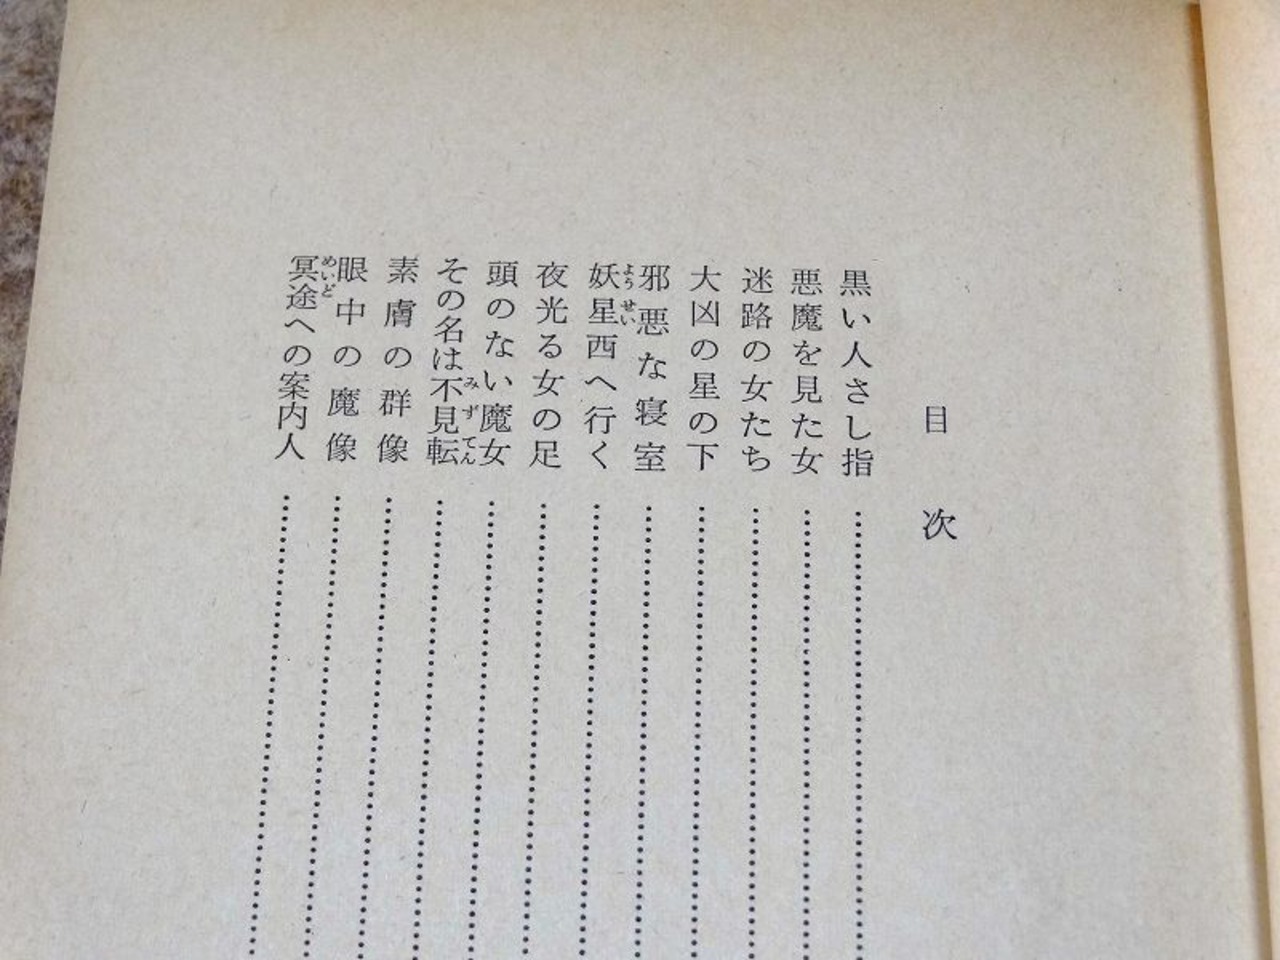 目次
黒い人さし指
悪魔を見た女
迷路の女たち
大凶の星の下
邪悪な寝室
妖星西へ行く
ようせい
夜光る女の足
頭のない魔女
その名は不見転
みずてん
素膚の群像
眼中の魔像
冥途への案内人
めいど